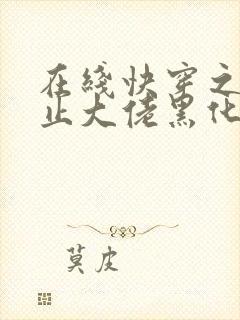 在綫快穿之
止大佬黑化
莫皮